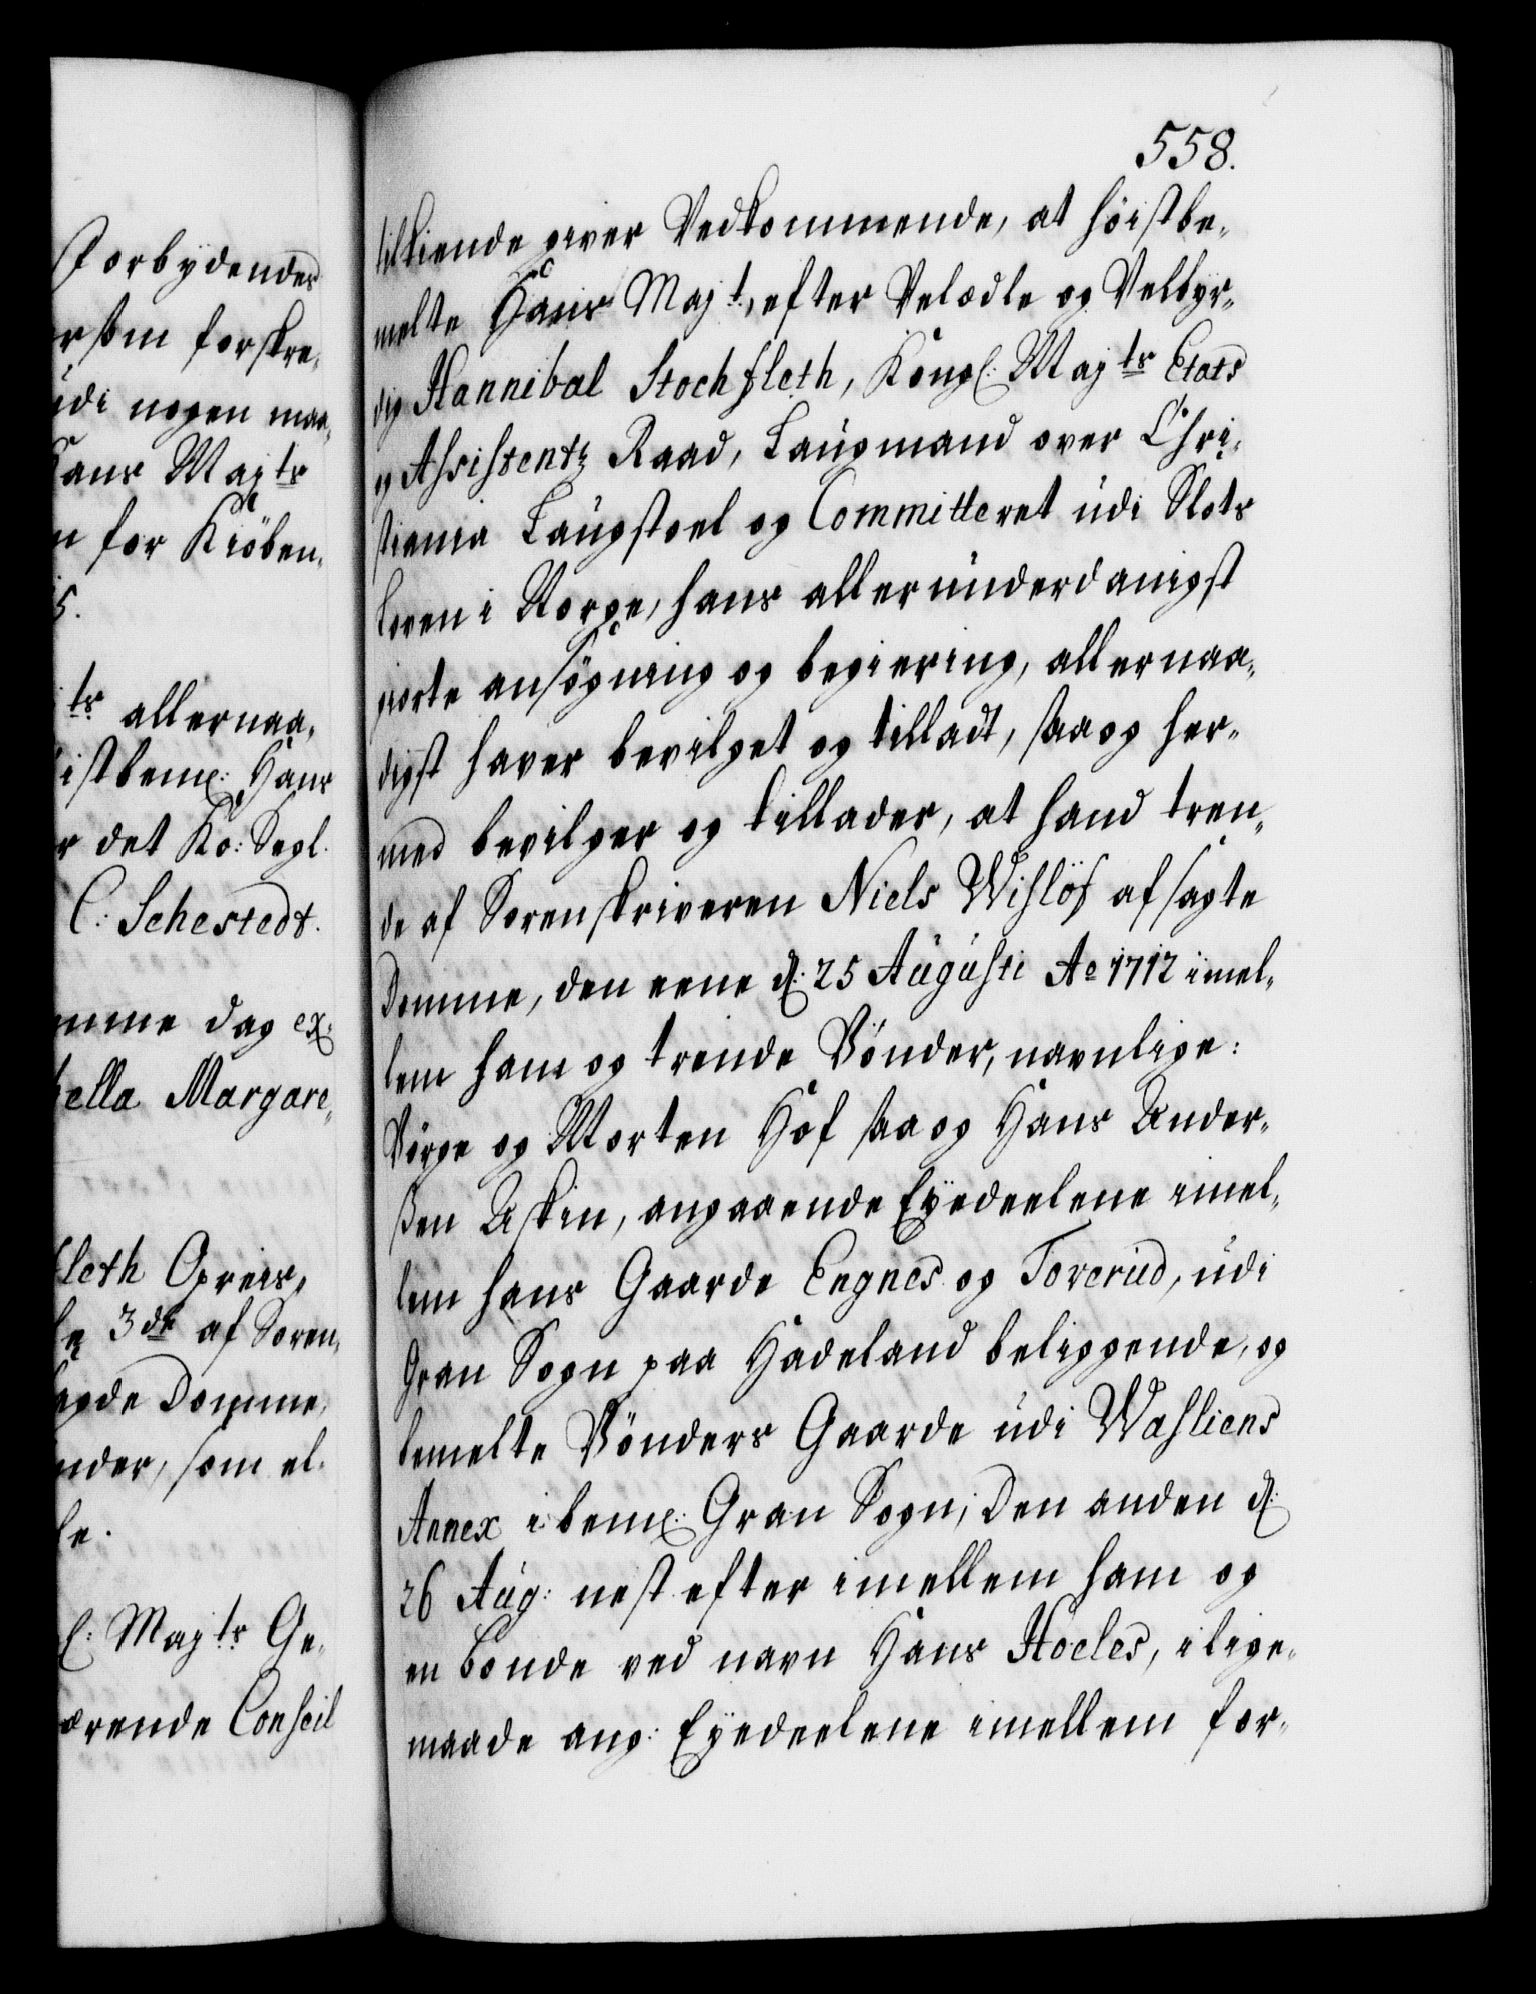 Forbydendes
ersom forskre¬
udi nogen maa¬
Hans Majts
n for Kiöben¬
5.
ts allernaa¬
istbemt: Hans
r det Ko: Segl.
C: Schestedt.
mme dag ex:
bella Margare¬
fleth Opreis¬
le 3de af Soren¬
agde Domme,
nder, som el¬
le.
l: Majts Ge¬
ærende Conseil
558.
tilkiende giver Vedkommende, at höistbe¬
melte Hans Majt, efter Velædle og Velbyr¬
dig Hannibal Stochfleth, Kongl: Majts Etats
og Assistentz Raad, Laugmand over Chri¬
stiania Laugstoel og Committeret udi Slots
loven i Norge, hans allerunderdanigst
giorte ansögning og begiering, allernaa¬
digst haver bevilget og tilladt, saa og her¬
med bevilger og tillader, at hand tren¬
de af Sorenskriveren Niels Wislöf afsagte
Domme, den eene d: 25 Augusti Ao 1712 imel¬
lem ham og trende Bönder, navnlige:
Börge og Morten Hof saa og Hans Ander¬
ßen Askin, angaaende Eyedeelene imel¬
lem hans Gaarde Engnes og Toverud, udi
Gran Sogn paa Hadeland beliggende, og
bemelte Bönders Gaarde udi Wasliens
Annex i bemt: Gran Sogn; Den anden d:
26 Aug: nest efter imellem ham og
en bonde ved navn Hans Hoeles, i lige¬
maade ang: Eyedeelene imellem for¬